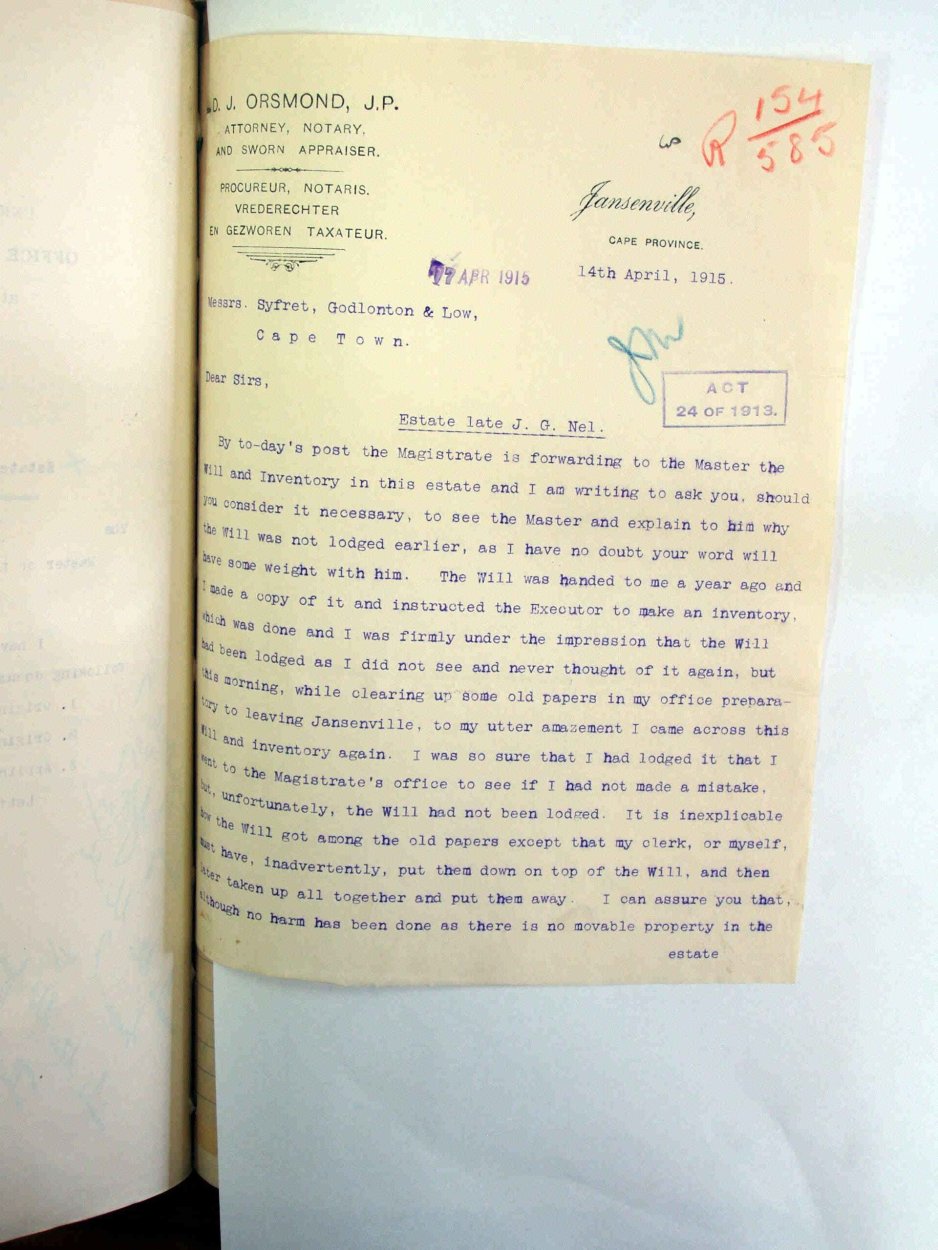 D. J. ORSMOND, J.P.
ATTORNEY, NOTARY,
AND SWORN APPRAISER.
PROCUREUR, NOTARIS.
VREDERECHTER
EN GEZWOREN TAXATEUR.
R 154
585
Jansenville,
CAPE PROVINCE.
14th April, 1915.
17 APR 1915
Messrs. Syfret, Godlonton & Low,
Cape Town.
Dear Sirs,
ACT
24 OF 1913.
Estate late J. G. Nel.
By to-day's post the Magistrate is forwarding to the Master the
Will and Inventory in this estate and I am writing to ask you, should
you consider it necessary, to see the Master and explain to him why
the Will was not lodged earlier, as I have no doubt your word will
have some weight with him. The Will was handed to me a year ago and
I made a copy of it and instructed the Executor to make an inventory,
which was done and I was firmly under the impression that the Will
had been lodged as I did not see and never thought of it again, but
this morning, while clearing up some old papers in my office prepara-
tory to leaving Jansenville, to my utter amazement I came across this
Will and inventory again. I was so sure that I had lodged it that I
went to the Magistrate's office to see if I had not made a mistake,
but, unfortunately, the Will had not been lodged. It is inexplicable
how the Will got among the old papers except that my clerk, or myself,
must have, inadvertently, put them down on top of the Will, and then
later taken up all together and put them away. I can assure you that,
although no harm has been done as there is no movable property in the
estate